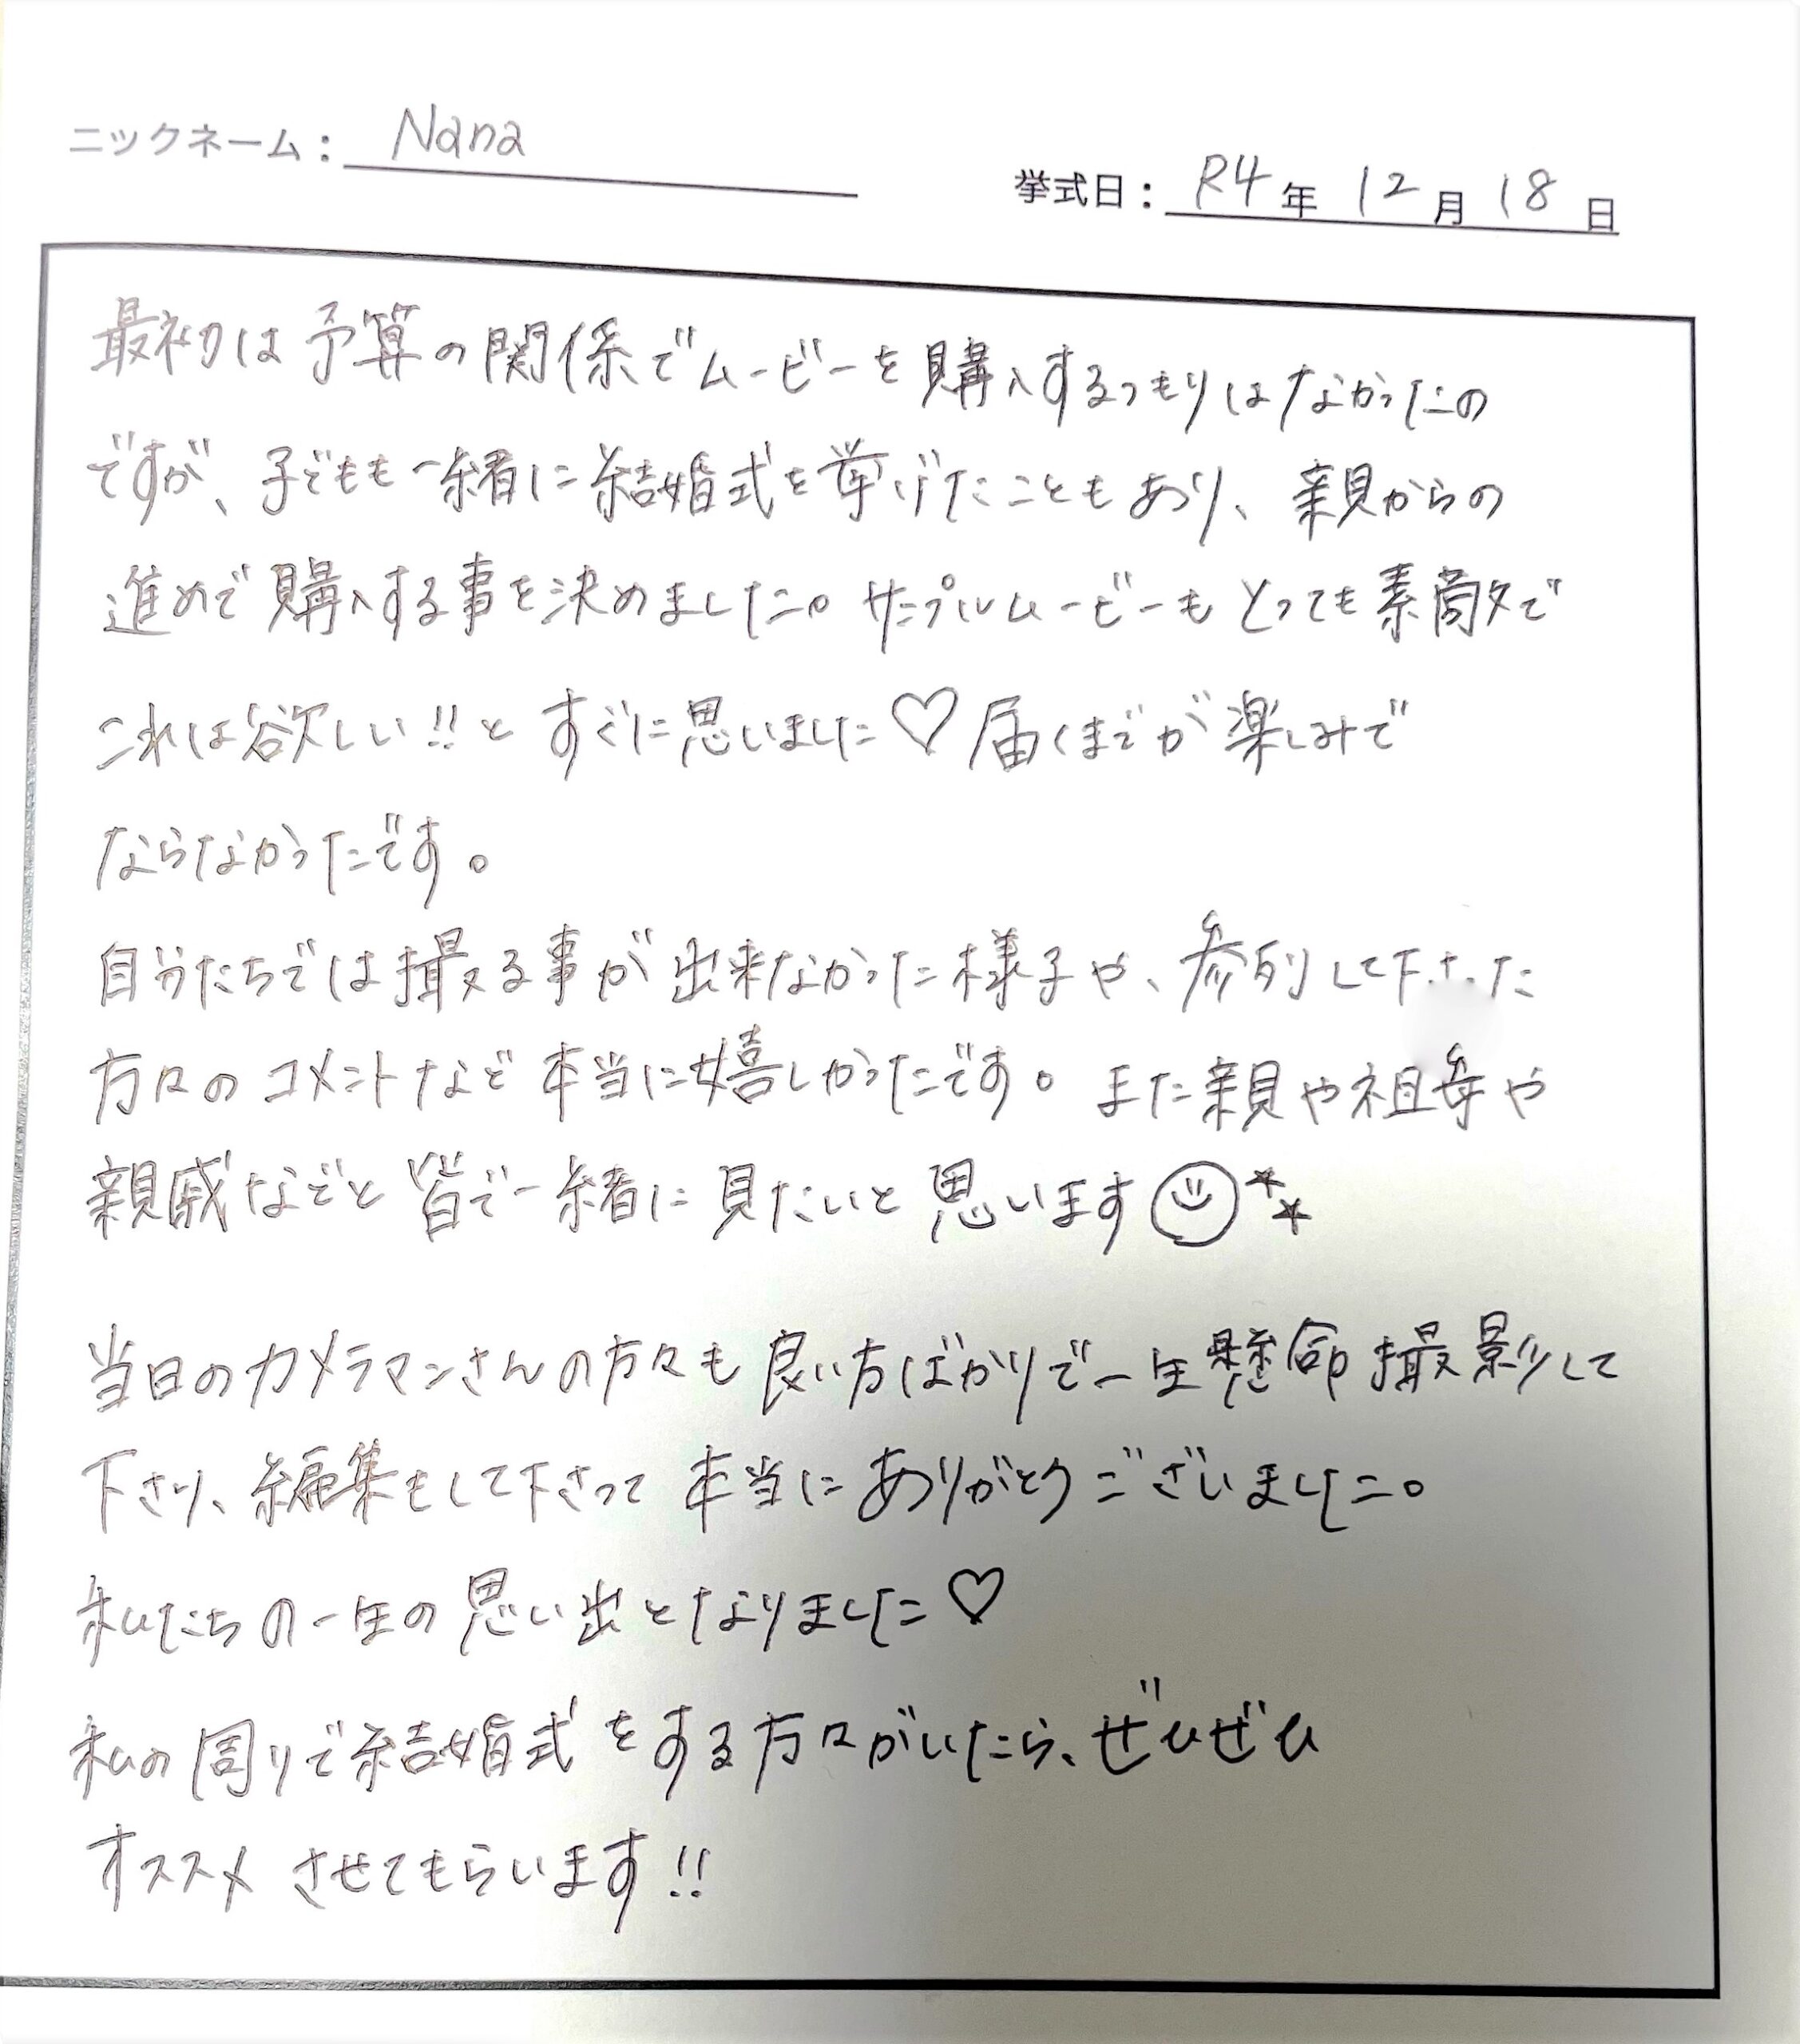 ニックネーム： Nana
挙式日： R4年 12月 18日
最初は予算の関係でムービーを購入するつもりはなかったの
ですが、子どもも一緒に結婚式を挙げたこともあり、親からの
進めで購入する事を決めました。サンプルムービーもとっても素敵で
これは欲しい!!とすぐに思いました♡届くまでが楽しみで
ならなかったです。
自分たちでは撮る事が出来なかった様子や、参列して下さった
方々のコメントなど本当に嬉しかったです。また親や祖母や
親戚などと皆で一緒に見たいと思います☺☆☆
当日のカメラマンさんの方々も良い方ばかりで一生懸命撮影して
下さり、編集もして下さって本当にありがとうございました。
私たちの一生の思い出となりました♡
私の周りで結婚式をする方々がいたら、ぜひぜひ
オススメさせてもらいます!!